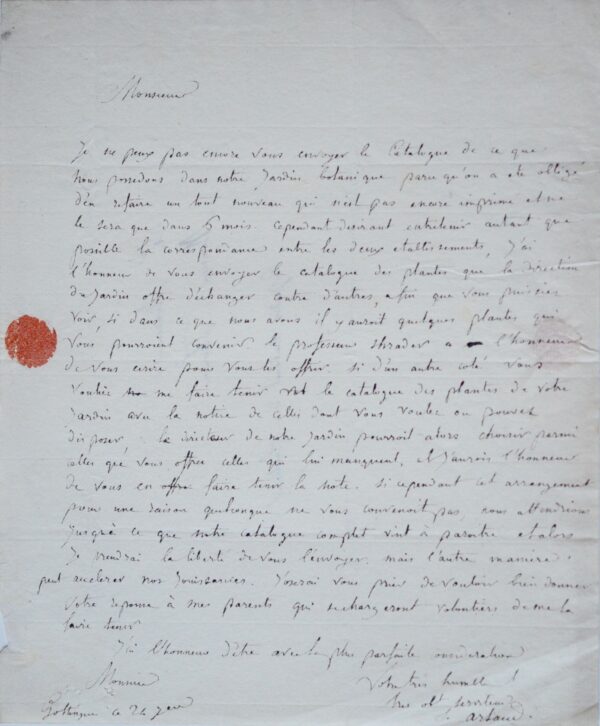 Monsieur
Je ne peux pas encore vous envoyer le Catalogue de ce que
nous possedons dans notre Jardin botanique parce qu'on a été obligé
d'en refaire un tout nouveau qui n'est pas encore imprimé et ne
le sera que dans 6 mois. Cependant desirant entretenir autant que
possible la correspondance entre les deux etablissements, J'ai
l'honneur de vous envoyer le catalogue des plantes que la direction
du Jardin offre d'échanger contre d'autres, afin que vous puissiez
voir, si dans ce que nous avons il y auroit quelques plantes qui
vous pourroient convenir le professeur shrader a l'honneur
de vous ecrire pour vous les offrir. si d'un autre coté vous
voulez me faire tenir le catalogue des plantes de votre
Jardin avec la notice de celles dont vous voulez ou pouvez
disposer, le directeur de notre Jardin pourroit alors choisir parmi
celles que vous offrez celles qui lui manquent, et J'aurois l'honneur
de vous en faire tenir la note. Si cependant cet arrangement
pour une raison quelconque ne vous convenoit pas, nous attendrions
Jusqu'à ce que notre catalogue complet vint à paroitre et alors
Je prendrai la liberté de vous l'envoyer. mais l'autre maniere
peut accelerer nos Jouissances. J'oserai vous prier de vouloir bien donner
votre reponse à mes parents qui se chargeront volontiers de me la
faire tenir
J'ai l'honneur d'être avec la plus parfaite consideration
Monsieur
Votre tres humble
tres obt serviteur
Gottingue ce 24
artaud